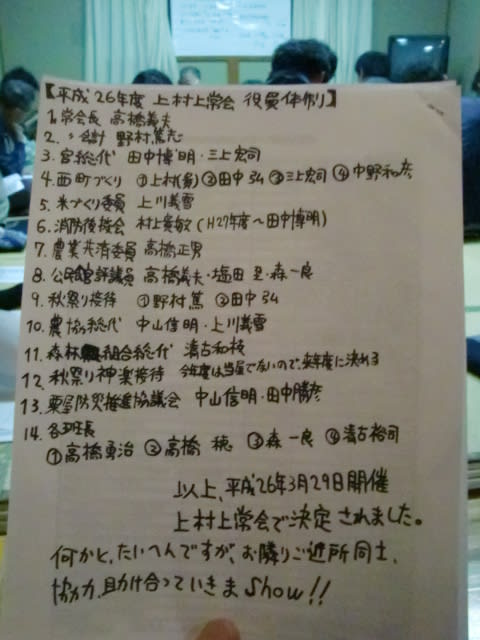 【平成26年度 上村上常会 役員体制】
1. 常会長 高橋義夫
2. 〃会計 野村篤志
3. 宮総代 田中博明・三上宏司
4. 西町づくり ①上村(多) ②田中弘 ③三上宏司 ④中野和彦
5. 米づくり委員 上川義雪
6. 消防後援会 村上貴敏(H27年度〜田中博明)
7. 農業共済委員 高橋正男
8. 公民館評議員 高橋義夫・塩田 ・森一良
9. 秋祭り接待 ①野村篤 ②田中弘
10. 農協総代 中山信明・上川義雪
11. 森林組合総代 清古和枝
12. 秋祭り神楽接待 今年度は当屋でないので、来年度に決れる
13. 粟屋防災推進協議会 中山信明・田中勝彦
14. 各班長
①高橋勇治 ②高橋 穂 ③森 一良 ④清古裕司
以上、平成26年3月29日開催
上村上常会で決定されました。
何かと、たいへんですが、お隣りご近所同士、
協力、助け合っていきまShow!!